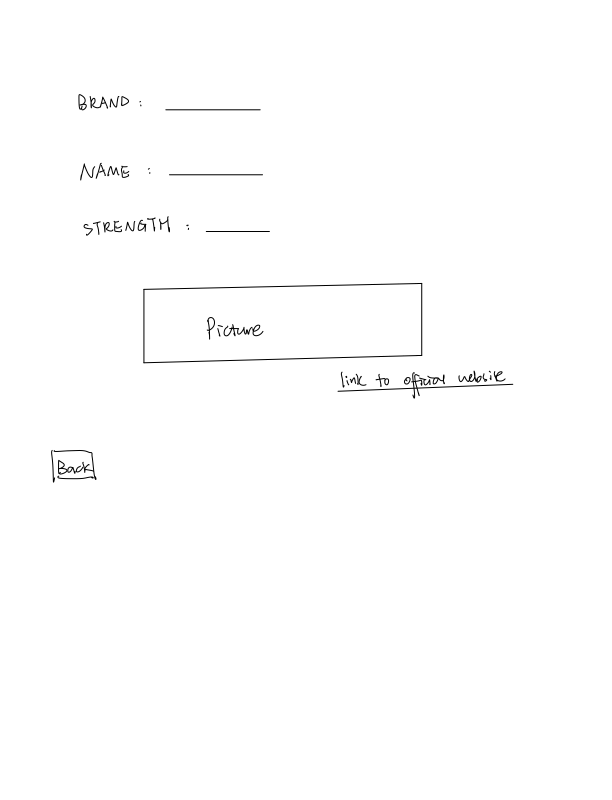 BRAND :
NAME :
STRENGTH :
Picture
link to official website
Back